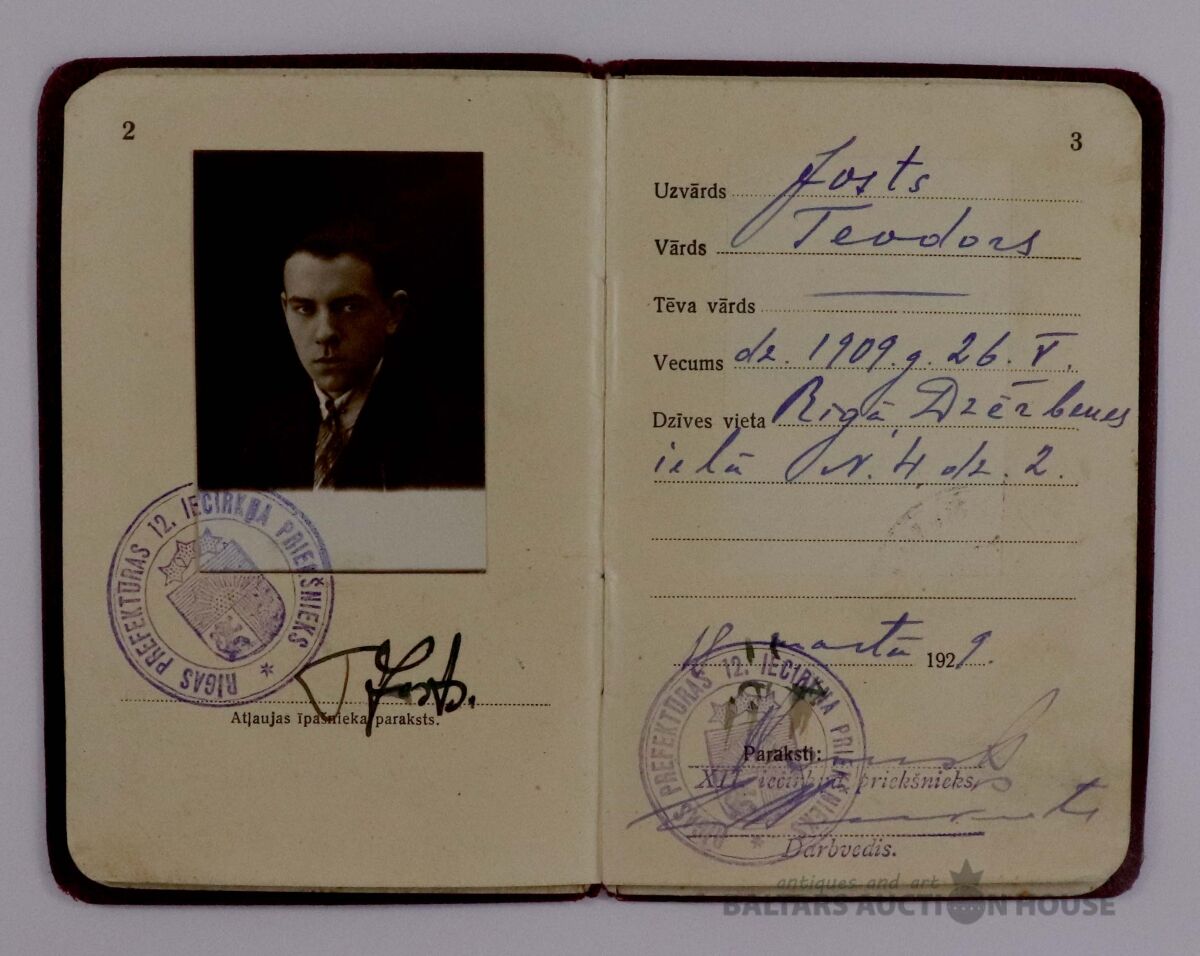 2
RĪGAS PREFEKTŪRAS 12. IECIRKŅA PRIEKŠNIEKS *
T. Josts.
Atļaujas īpašnieka paraksts.
3
Uzvārds Josts
Vārds Teodors
Tēva vārds
Vecums dz. 1909. g. 26. V.
Dzīves vieta Rīgā, Dzērbenes
ielā N. 4 dz. 2.
martā 1929.
RĪGAS PREFEKTŪRAS 12. IECIRKŅA PRIEKŠNIEKS *
Paraksti:
XII. iecirkņa priekšnieks,
Darbvedis.
antiques and art
BALTARS AUCTION HOUSE